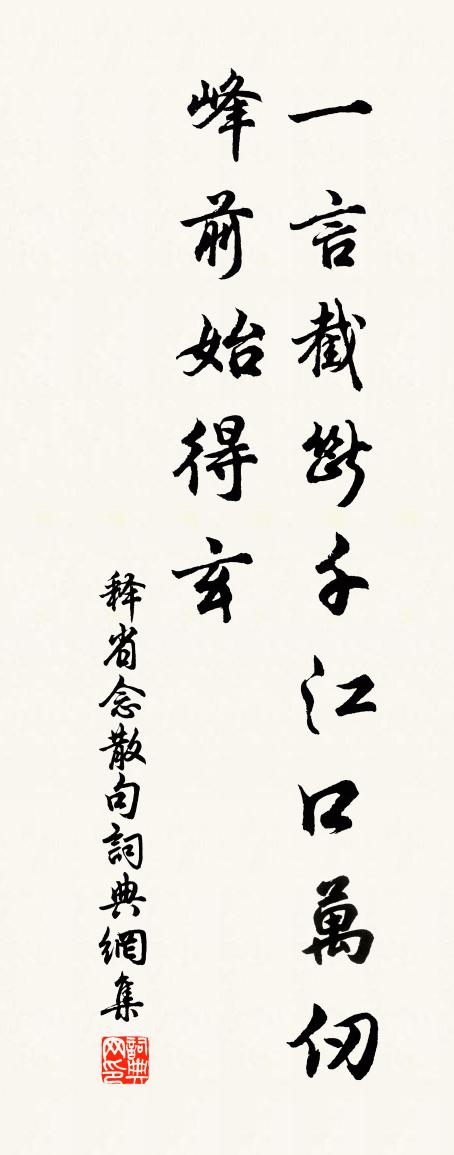 一言截斷千江口萬仞
峰前始得玄
释省念散句詞典網集
詞典网印